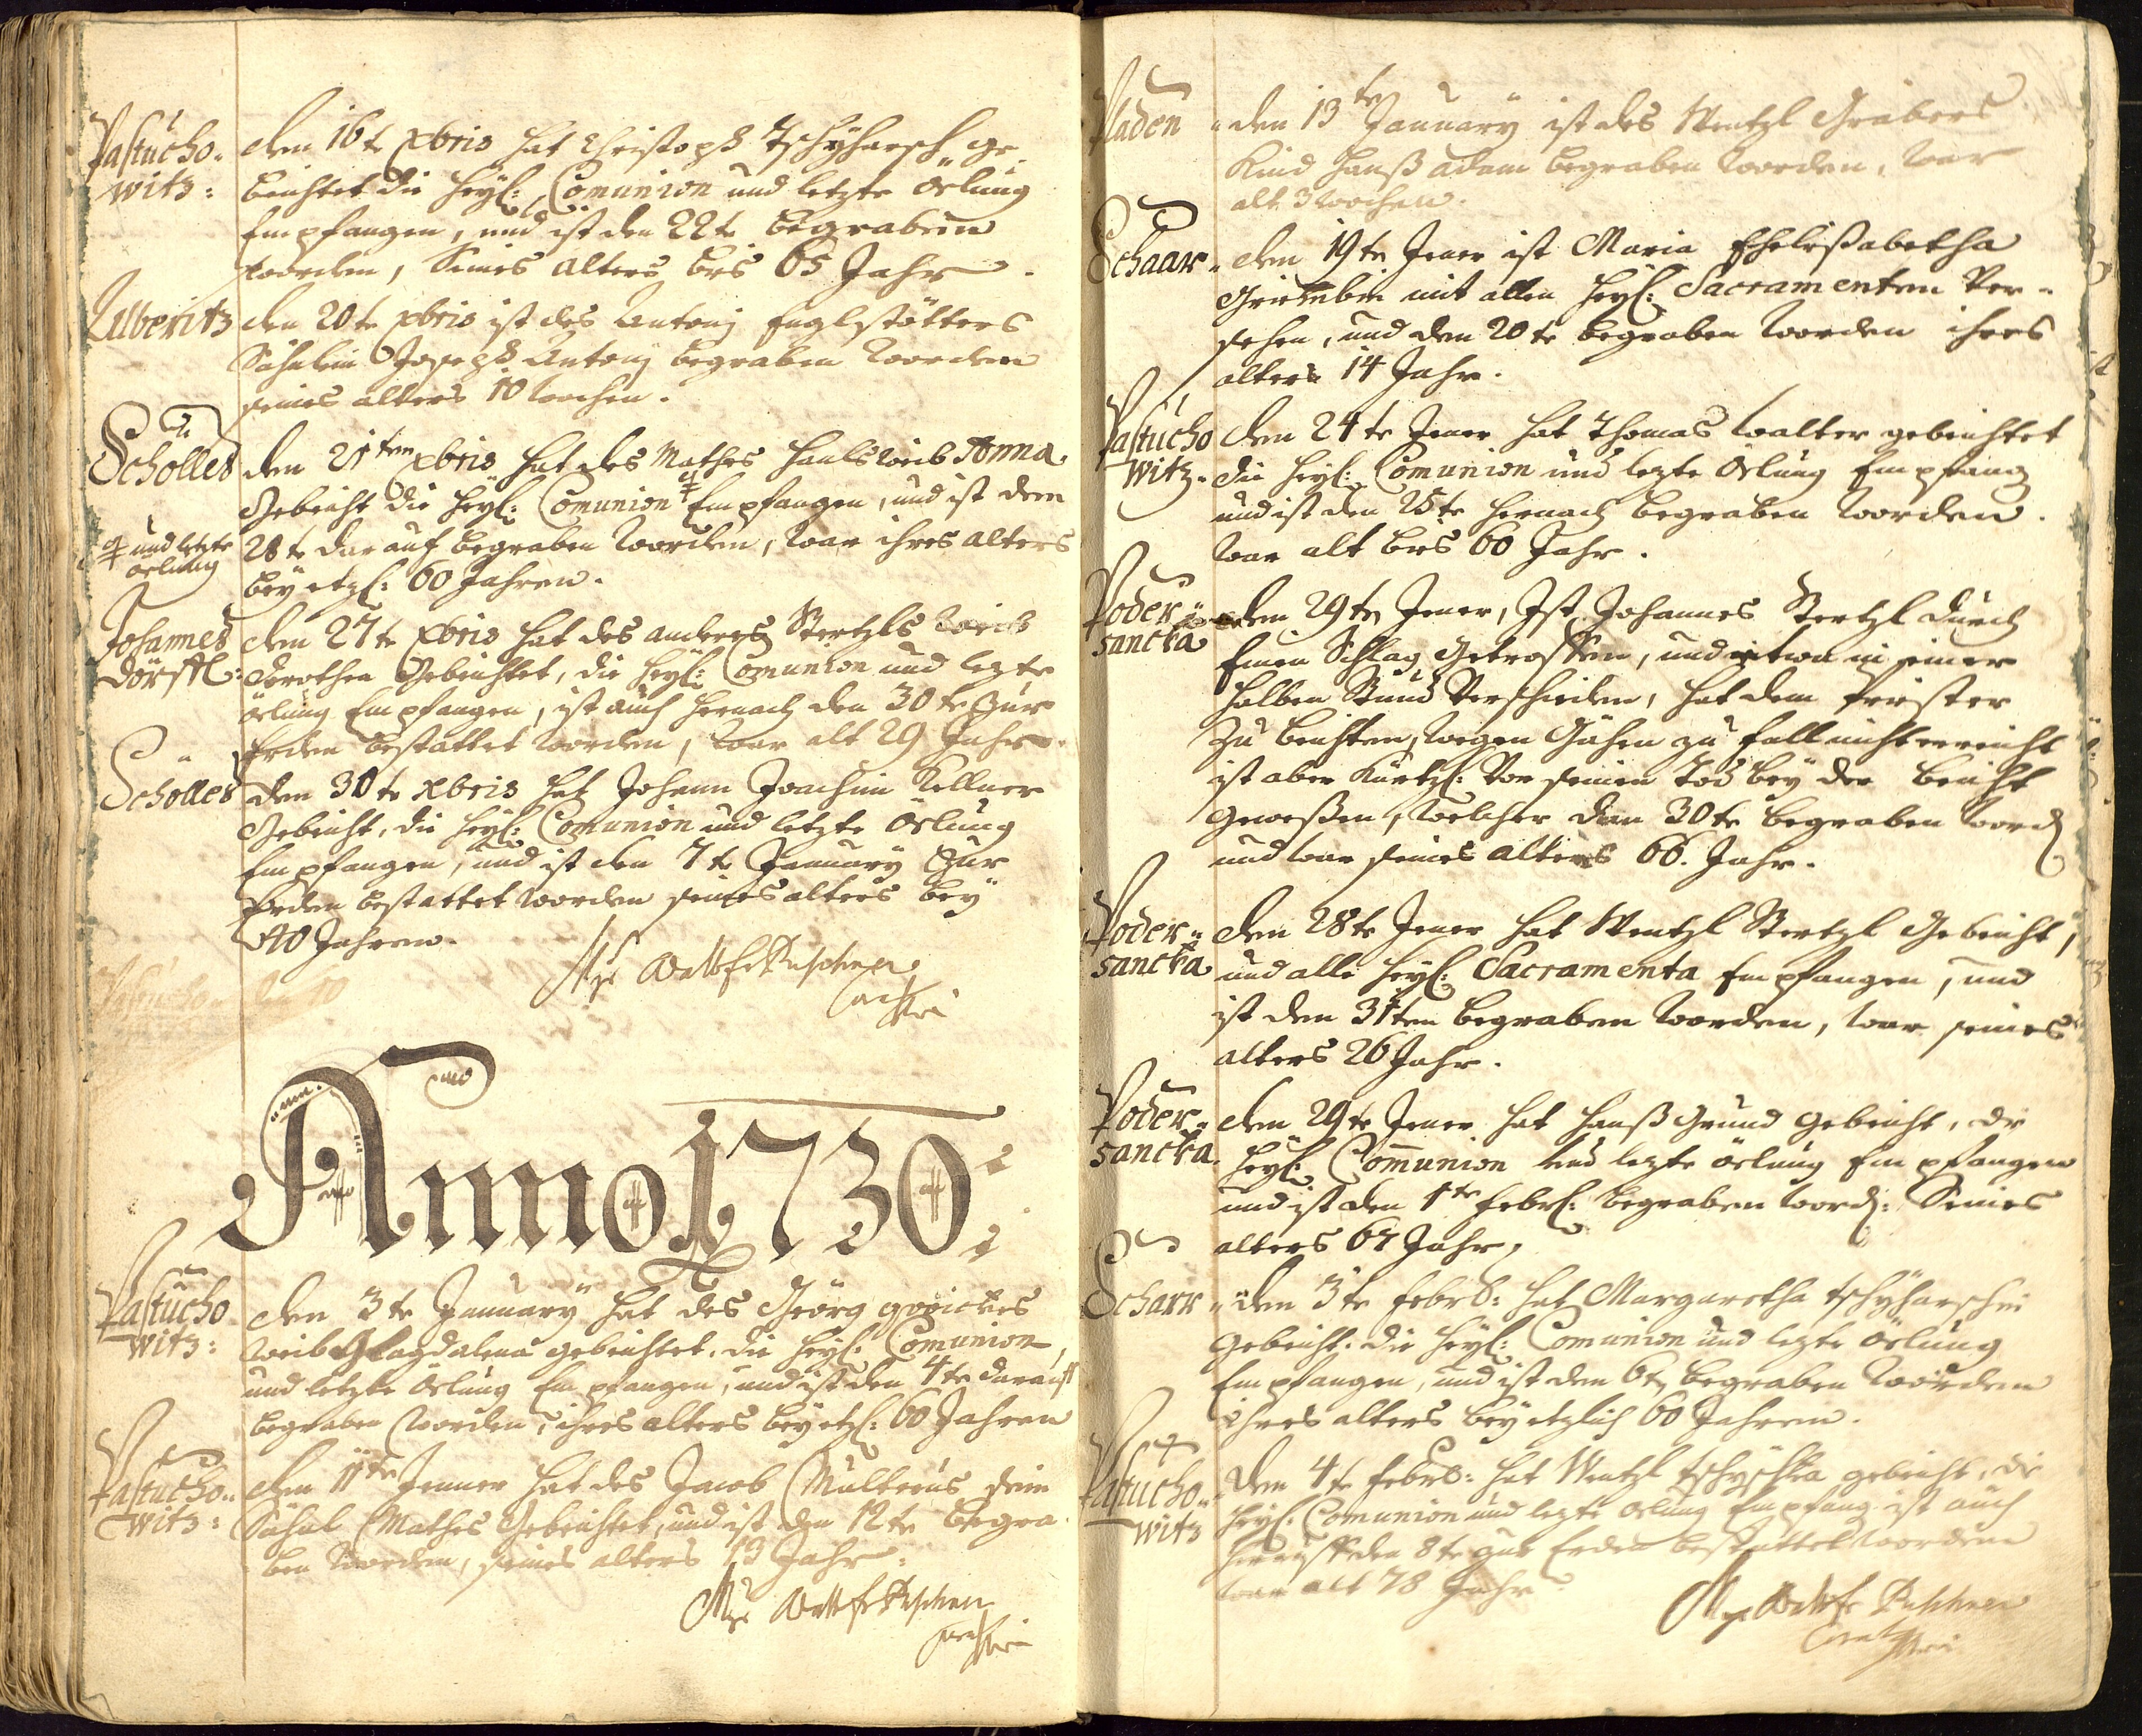 Pastucho-
witz:
den 16te Xbris hat Christoph Tschyharsch ge-
beichtet die heyl: Comunion und letzte Oelung
Empfangen, und ist den 22te begraben
worden, Seines alters bis 65 Jahr.
Luberitz
den 20te xbris ist des Antonj Englstötters
Söhnlein Joseph Antonj begraben worden
seines alters 10 wochen.
Scholles
den 21ten xbris hat des Mathes Hanls weib Anna
Gebeicht die heyl: Comunion Empfangen, und ist den
und letzte
oelung
28te darauf begraben worden, war ihres alters
bey etzl: 60 Jahren.
Johannes
dörffl:
den 27te Xbris hat des anderes Stertzls weib
Dorothea Gebeichtet, die heyl: Comunion und lezte
öelung Empfangen, ist auch hernach den 30te zur
Erden bestattet worden, war alt 29 Jahr.
Scholles
den 30te Xbris hat Johann Joachim Kellner
Gebeicht, die heyl: Comunion und letzte Öelung
Empfangen, und ist den 7te January Zur
Erden bestattet worden seines alters bey
40 Jahren.
Anno 1730
Pastucho
witz:
den 3te January hat des Georg
weib Magdalena gebeichtet, die heyl: Comunion,
und letzte Öelung Empfangen, und ist den 4te darauff
begraben worden, ihres alters bey etzl: 60 Jahren
Pastucho-
witz:
den 11te Jenner hat des Jacob Mülterns sein
Söhnl Mathes Gebeichtet, und ist den 12te begra-
ben worden, seines alters 13 Jahr.
Fladen
den 13te January ist des Wentzl Grabers
Kind Hanß adam begraben worden, war
alt 3 wochen.
Schaar
den 19te Jener ist Maria Ehelißabetha
mit allen heyl: Sacramenten Ver-
sehen, und den 20te begraben worden ihres
alters 14 Jahr.
Pastucho
witz
den 24te Jener hat Thomas Walter gebeichtet
die heyl: Comunion und lezte Oelung Empfang
und ist den 25te hernach begraben worden.
War alt bis 60 Jahr.
Poder-
sancka
den 29te Jener, Ist Johannes Stertzl durch
Einen Schlag Getroffen, und etwa in einer
halben Stund Verschieden, hat dem Priester
Zu beichten, wegen Gähen zu fall nicht erreicht
ist aber Kürtzl: Vor seinen Tod bey der beicht
Geweßen, welcher den 30te begraben word
und war seines alters 66. Jahr.
Poder-
sancka
den 28te Jener hat Wentzl Stertzl Gebeicht,
und alle heyl: Sacramenta Empfangen, und
ist den 31ten begraben worden, war seines
alters 26 Jahr.
Poder-
sancka
den 29te Jener hat Hanß Grund gebeicht, die
heyl: Comunion und lezte öelung Empfangen
und ist den 1te Febrl: begraben word: Seines
alters 67 Jahr,
Scharr
den 3te Febrb: hat Margaretha Tschyharschin
gebeicht. die heyl: Comunion und lezte Öelung
Empfangen, und ist den 6te begraben worden
Ihres alters bey etzlich 60 Jahren.
Pastucho-
witz
den 4te Febrb: hat Wentzl Tschyschka gebeicht, die
heyl: Comunion und lezte oelung Empfang. ist auch
hierauff den 8te zur Erden bestattet worden
war alt 78 Jahr